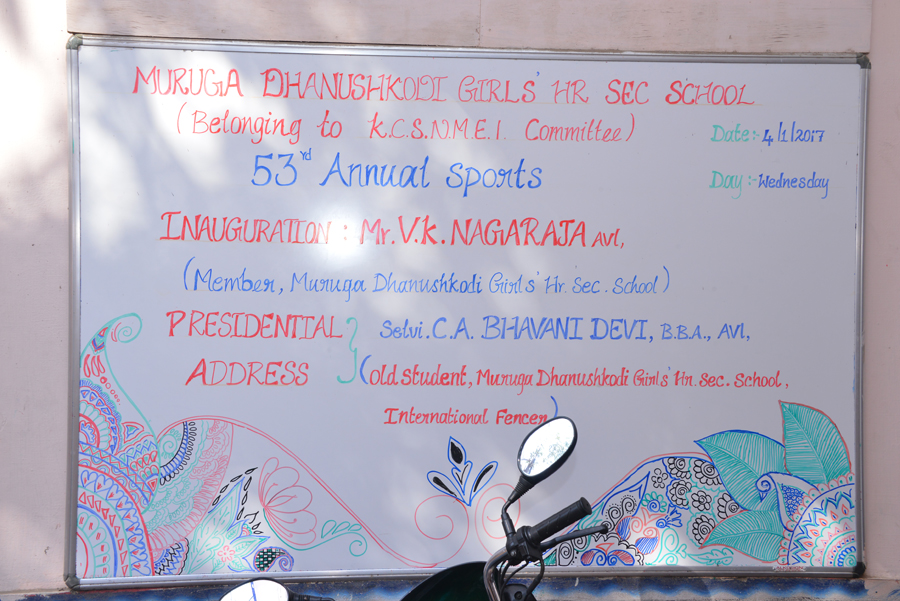 MURUGA DHANUSHKODI GIRLS' HR SEC SCHOOL
(Belonging to K.C.S.N.M.E.I. Committee)
Date:- 4/1/2017
53rd Annual Sports
Day:- Wednesday
INAUGURATION : Mr. V.K. NAGARAJA AVl,
(Member, Muruga Dhanushkodi Girls' Hr. Sec. School)
PRESIDENTIAL ADDRESS } Selvi. C.A. BHAVANI DEVI, B.B.A., AVl,
(Old Student, Muruga Dhanushkodi Girls' Hr. Sec. School,
International Fencer)